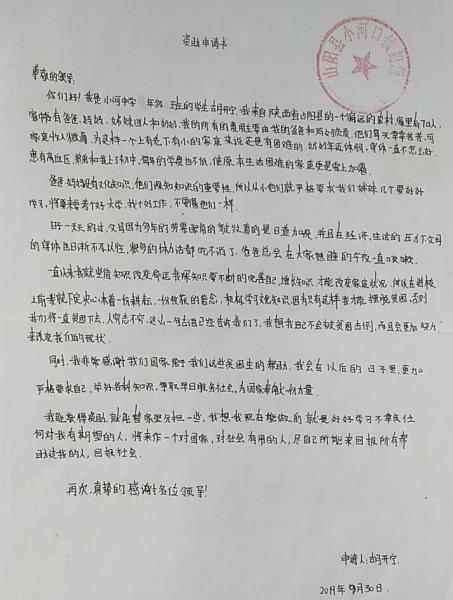 资助申请书
山阳县小河口镇初级
尊敬的领导:
你们好!我是小河中学 年级 班的学生胡开宁,我来自陕西省山阳县的一个偏远的农村,家里有7口人,
家中有爸爸、妈妈、姊妹四人和奶奶,我的所有的费用主要由我的爸爸和妈妈供应。他们每天辛辛苦苦,可
家庭收入微薄,为这样一个上有老下有小的家庭来说还是有困难的,奶奶年迈体弱,身体一直不怎么好,
患有高血压,弟弟和我上了初中,每年的学费也不低,使原本生活困难的家庭更是雪上加霜。
爸爸、妈妈没有文化知识,他们深知知识的重要性,所以从小他们就严格要求我们姊妹几个要好好
学习,将来要考个好大学,找个好工作,不要像他们一样。
日子一天天的过,父母因为多年的劳累
父母
的身体已日渐不如以往,很多的体力活都吃不消了,爸爸总会在大家熟睡的午夜一直咳嗽。
一直以来我就坚信知识改变命运,我深知只要不断的完善自己,增长知识,才能改变家庭状况,所以在进校
上后者就下定决心,本着一份耕耘,一份收获的意念,积极学习文化知识,因为只有这样者才能摆脱贫困,否则
我们将一直贫困下去,人穷志不穷,这么一句古语已经告诉我们了,我想我已不会被贫困击倒,而且会更加努力
来改变我们的现状。
同时,我非常感谢我们国家给予我们这些贫困生的帮助,我会在以后的日子里,更加
严格要求自己,学好各种知识,争取早日服务社会,为国家奉献一份力量。
我能获得资助,就能替家里分担一些,我想我现在能做的就是好好学习不辜负任
何对我有期望的人,将来作一个对国家,对社会有用的人,尽自己所能来回报所有帮
助过我的人,回报社会。
再次,真挚的感谢各位领导!
申请人:胡开宁
9月30日.